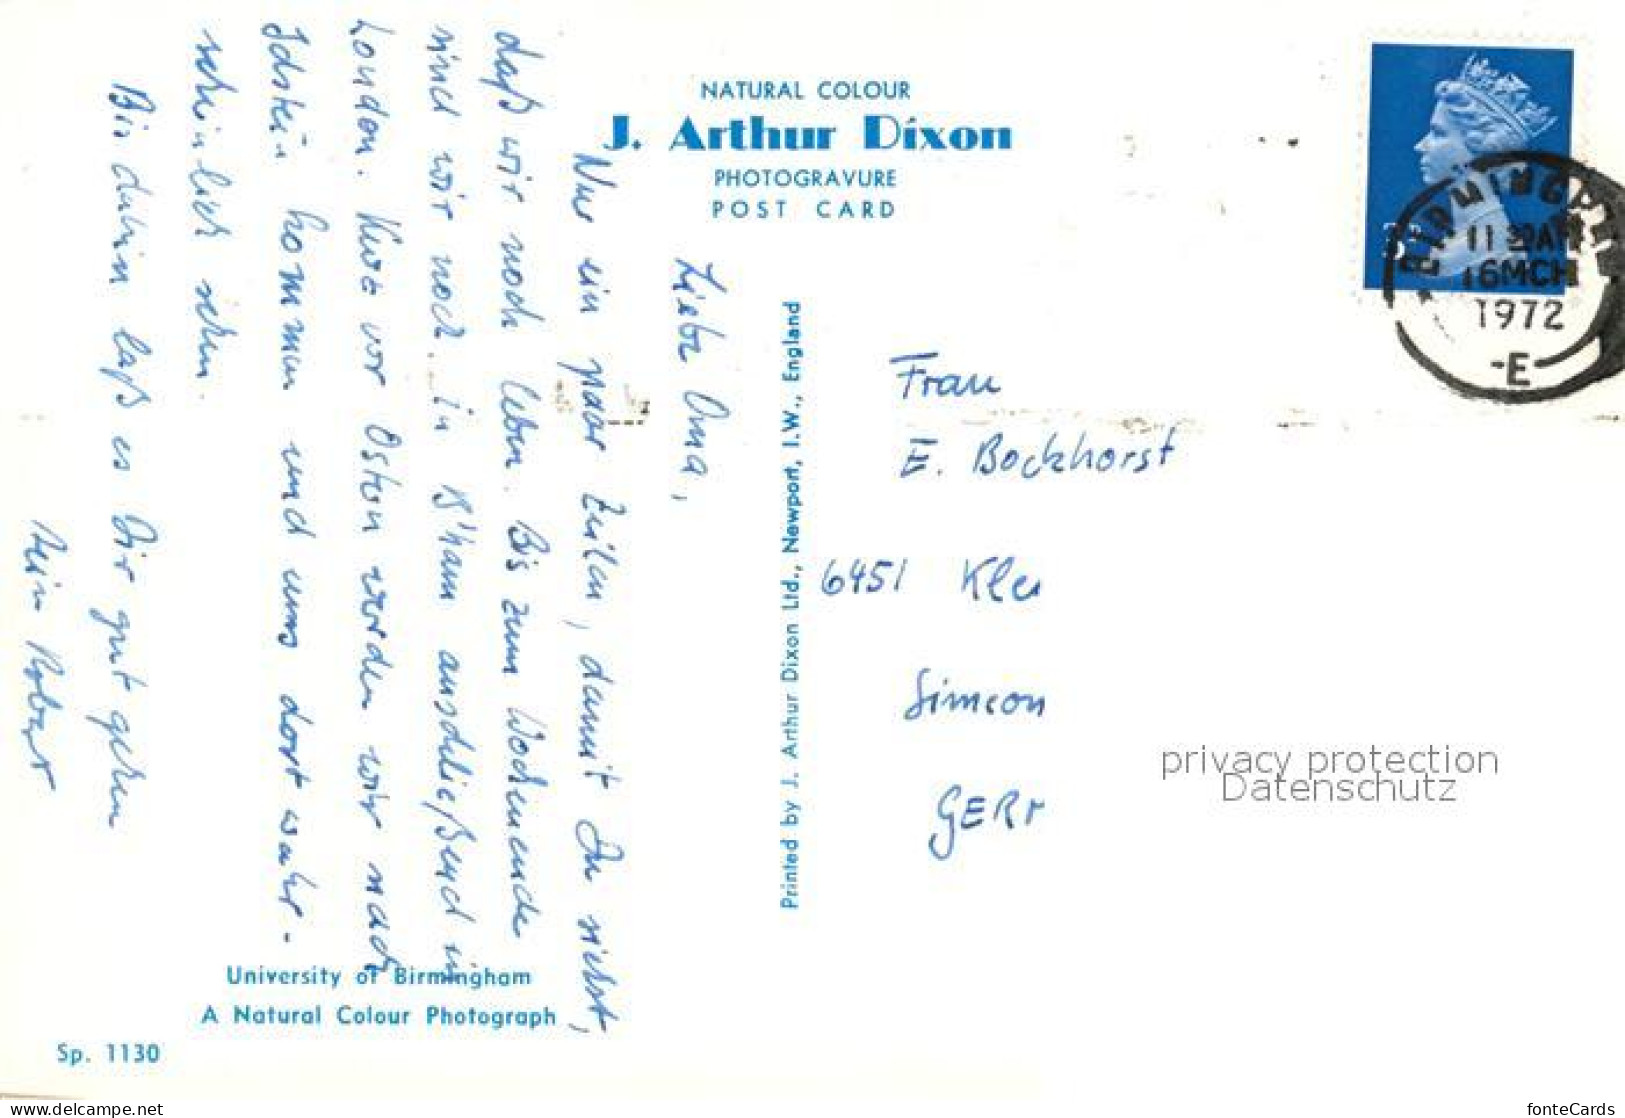 NATURAL COLOUR
J. Arthur Dixon
PHOTOGRAVURE
POST CARD
Liebe Oma,
Nur ein paar Zeilen, damit Du siehst,
daß wir noch leben. Bis zum Wochenende
sind wir noch in B'ham anschließend in
London. Kurz vor Ostern werden wir nach
Idstein kommen und uns dort wahr-
scheinlich sehen.
Bis dahin laß es Dir gut gehen
Dein Robert
University of Birmingham
A Natural Colour Photograph
Sp. 1130
Printed by J. Arthur Dixon Ltd., Newport, I.W., England
3P
BIRMINGHAM
11 30AM
16MCH
1972
-E-
Frau
E. Bockhorst
6451 Kle
Simeon
GERM
privacy protection
Datenschutz
www.delcampe.net
fonteCards